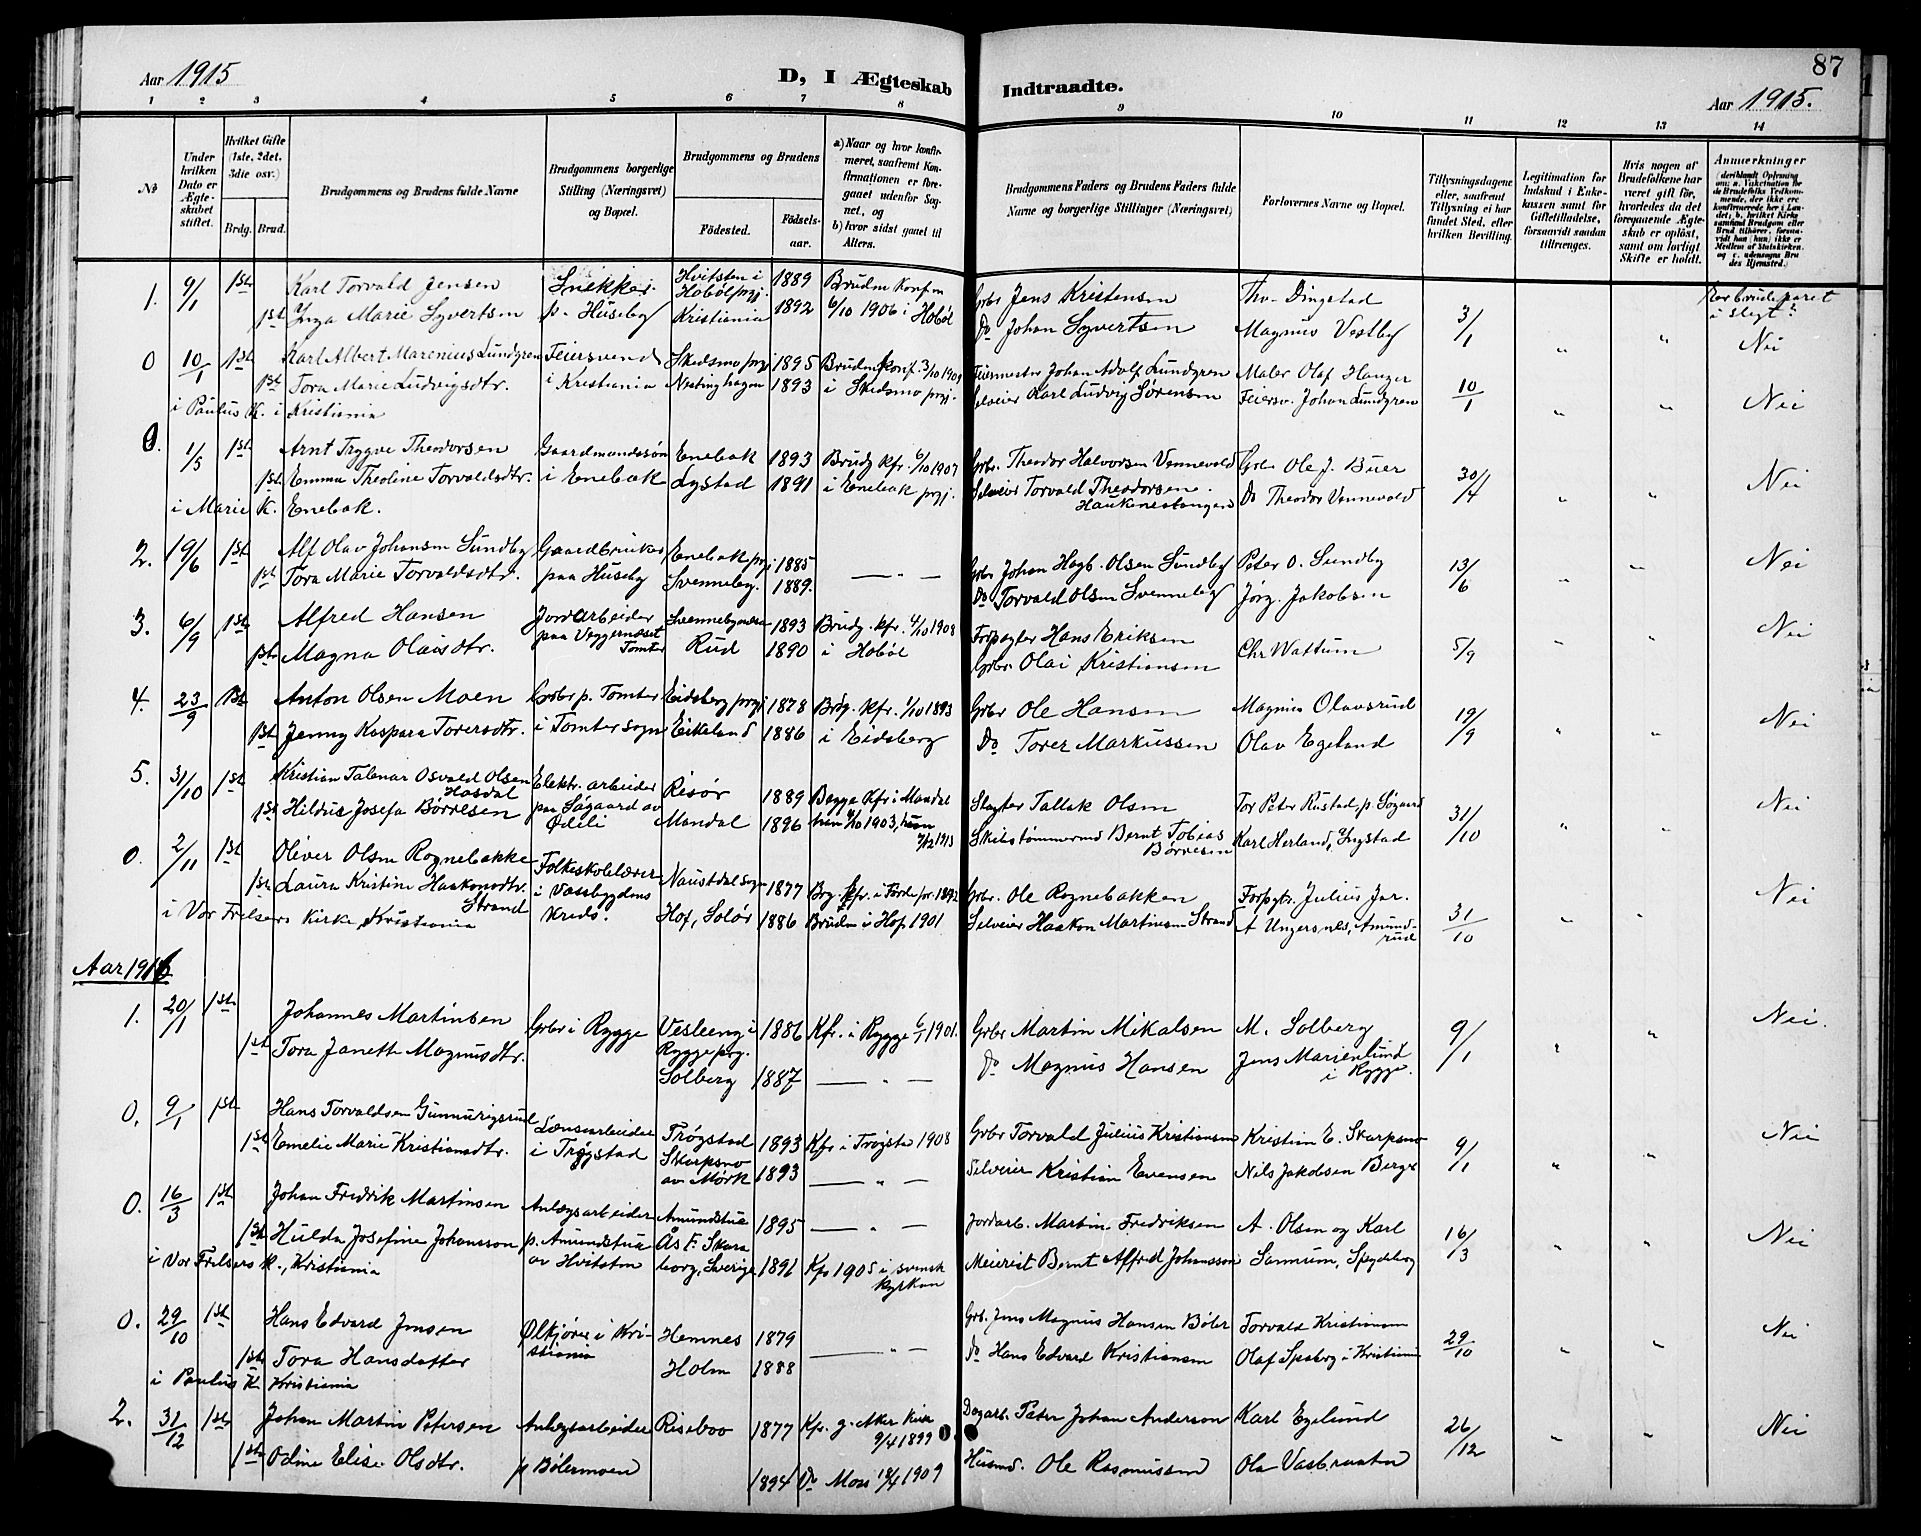 87
Aar 1915
D, I Ægteskab Indtraadte.
Aar 1915.
1 2 3 4 5 6 7 8 9 10 11 12 13 14
№
Under hvilken Dato er Ægteskabet stiftet.
Hvilket Gifte (1ste, 2det, 3die osv.)
Brdg. Brud.
Brudgommens og Brudens fulde Navne
Brudgommens borgerlige Stilling (Næringsvei) og Bopæl.
Brudgommens og Brudens
Fødested.
Fødselsaar.
a) Naar og hvor konfirmeret, saafremt Konfirmationen er foregaaet udenfor Sognet, og
b) hvor sidst gaaet til Alters.
Brudgommens Faders og Brudens Faders fulde Navne og borgerlige Stillinger (Næringsvei)
Forlovernes Navne og Bopæl.
Tillysningsdagene eller, saafremt Tillysning ei har fundet Sted, efter hvilken Bevilling.
Legitimation for Indskud i Enkekassen samt for Giftetilladelse, forsaavidt saadan tiltrænges.
Hvis nogen af Brudefolkene har været gift før, hvorledes da det foregaaende Ægteskab er opløst, samt om lovligt Skifte er holdt.
Anmærkninger (deriblandt Oplysning om: a. Vakcination for de Brudefolks Vedkommende, der ikke ere konfirmerede her i Landet, b. hvilket Kirkesamfund Brudgom eller Brud tilhører, forsaavidt han (hun) ikke er Medlem af Statskirken, og c. udensogns Brudes Hjemsted.)
Er brudeparet i slegt?
1. 9/1 1ste Karl Torvald Jensen Snekker Hvitsten i Hobøl prgj. 1889 Brudm Konf. Grbr Jens Kristensen Tho. Dingstad 3/1
1st Inga Marie Syvertsen p. Huseby Kristiania 1892 6/10 1906 i Hobøl Do Johan Syvertsen Magnus Vestby " " Nei
0 10/1 1ste Karl Albert Marenius Lundgren Feiersvend Skedsmo prgj 1895 Brudm konf. 3/10 1909 Feiermester Johan Adolf Lundgren Maler Olaf Hanger 10/1
1st Tora Marie Ludvigsdtr. i Kristiania Nestinghagen 1893 i Skedsmo prgj. Selveier Karl Ludvig Sørensen Feiersv. Johan Lundgren " " Nei
i Paulus K. i Kristiania
0. 1/5 1ste Arnt Trygve Theodorsen Gaardmandssøn Enebak 1893 Brudg kfr. 6/10 1907 Grbr. Theodor Halvorsen Vennevold Grbr Ole J. Buer 30/4
1st Emma Theoline Torvaldsdtr. i Enebak Lystad 1891 i Enebak prgj. Selveier Torvald Theodorsen Haukenestangen Do Theodor Vennevold " " Nei
i Marie K. Enebak.
2. 19/6 1ste Alf Olav Johansen Sundby Gaardbruker Enebak prgj 1885 — " — Grbr Johan Hagb. Olsen Sundby Peter O. Sundby 13/6
1st Tora Marie Torvaldsdtr. paa Huseby Svenneby. 1889. Do Torvald Olsen Svenneby Jørg. Jakobsen " " Nei
3. 6/9 1ste Alfred Hansen Jordarbeider 1893 Brudg. kfr. 4/10 1908 Forpagter Hans Eriksen Chr Wattum 5/9
1st Magna Olaisdtr. paa Veggernæset Tomter Rud 1890 i Hobøl Grbr Olai Kristiansen " " Nei
4. 23/9 1ste Anton Olsen Moen Grbr p. Tomter Eidsberg prgj 1878 Brdg. kfr. 1/10 1893 Grbr Ole Hansen Magnus Olavsrud 19/9
1st Jenny Kaspara Torersdtr. i Tomter sogn Eikeland 1886 i Eidsberg Do Torer Markussen Olav Egeland " " Nei
5. 31/10 1ste Kristian Talenar Osvald Olsen Hasdal Elektr. arbeider Risør 1889 Begge Kfr i Mandal Slagter Tallak Olsen Tor Peter Rustad, p. Søgaard 31/10
1st Hildus Josefa Børresen paa Søgaard av Ødeli Mandal 1896 Skibstømmermd Bernt Tobias Børresen Karl Herland, Ingstad " " Nei
0. 2/11 1ste Oliver Olsen Rognebakke Folkeskolelærer Naustdal sogn 1877 Brg. kfr. i Førde pr. 1892 Grbr. Ole Rognebakken Forpgtr. Julius Jar.
1st Laura Kristine Haakonsdtr. Strand i Vassbygdens Kreds. Hof, Solør 1886 Bruden i Hof 1901 Selveier Haakon Martinsen Strand A Ungersnes, Amundrud 31/10 " " Nei
i Vor Frelsers Kirke, Kristiania
Aar 1916
1. 20/1 1ste Johannes Martinsen Grbr i Rygge Vesleeng i Rygge prg. 1886 Kfr. i Rygge 6/1 1901. Grbr Martin Mikalsen M. Solberg 9/1
1st Tora Janette Magnusdtr. Solberg 1887 — " — Do Magnus Hansen Jens Marienlund i Rygge. " " Nei.
0. 9/1 1ste Hans Torvaldsen Gunnurigsrud Lænsearbeider Trøgstad 1893 Kfr i Trøgsta 1908 Grbr Torvald Julius Kristiansen Kristian E. Skarpsno 9/1
1st Emelie Marie Kristiansdtr. i Trøgstad Skarpsno av Mørk 1893 — " — Selveier Kristian Evensen Nils Jakobsen Berge " " Nei
0. 16/3 1ste Johan Fredrik Martinsen Anlægsarbeider Amundstue 1895 — " — Jordarb. Martin Fredriksen A. Olsen og Karl 16/3
1st Hulda Josefine Johansson p. Amundstue av Hvitsten Ås F. Skaraborg, Sverige 1891 Kfr 1905 i svensk kyrkan Meierist Bernt Alfred Johansson Sannum, Spydeberg " " Nei
i Vor Frelsers K., Kristiania
0. 29/10 1ste Hans Edvard Jensen Ølkjører i Kristiania Hemnes 1879 — " — Grb. Jens Magnus Hansen Bøler Torvald Kristiansen 29/10
1st Tora Hansdatter Holm 1888 Do Hans Edvard Kristiansen Olaf Spaberg i Kristiania " " Nei
i Paulus K Kristiania
2. 31/12 1ste Johan Martin Petersen Anlægsarbeider Riseboo 1877 Kfr. g. Aker Kirke 9/4 1899 Dagarb. Peter Johan Anderson Karl Egelund 26/12
1st Odine Elise Olsdtr. p Bølermoen 1894 Do Moss 18/4 1909 Husmd. Ole Rasmussen Ola Vasbraaten " " Nei